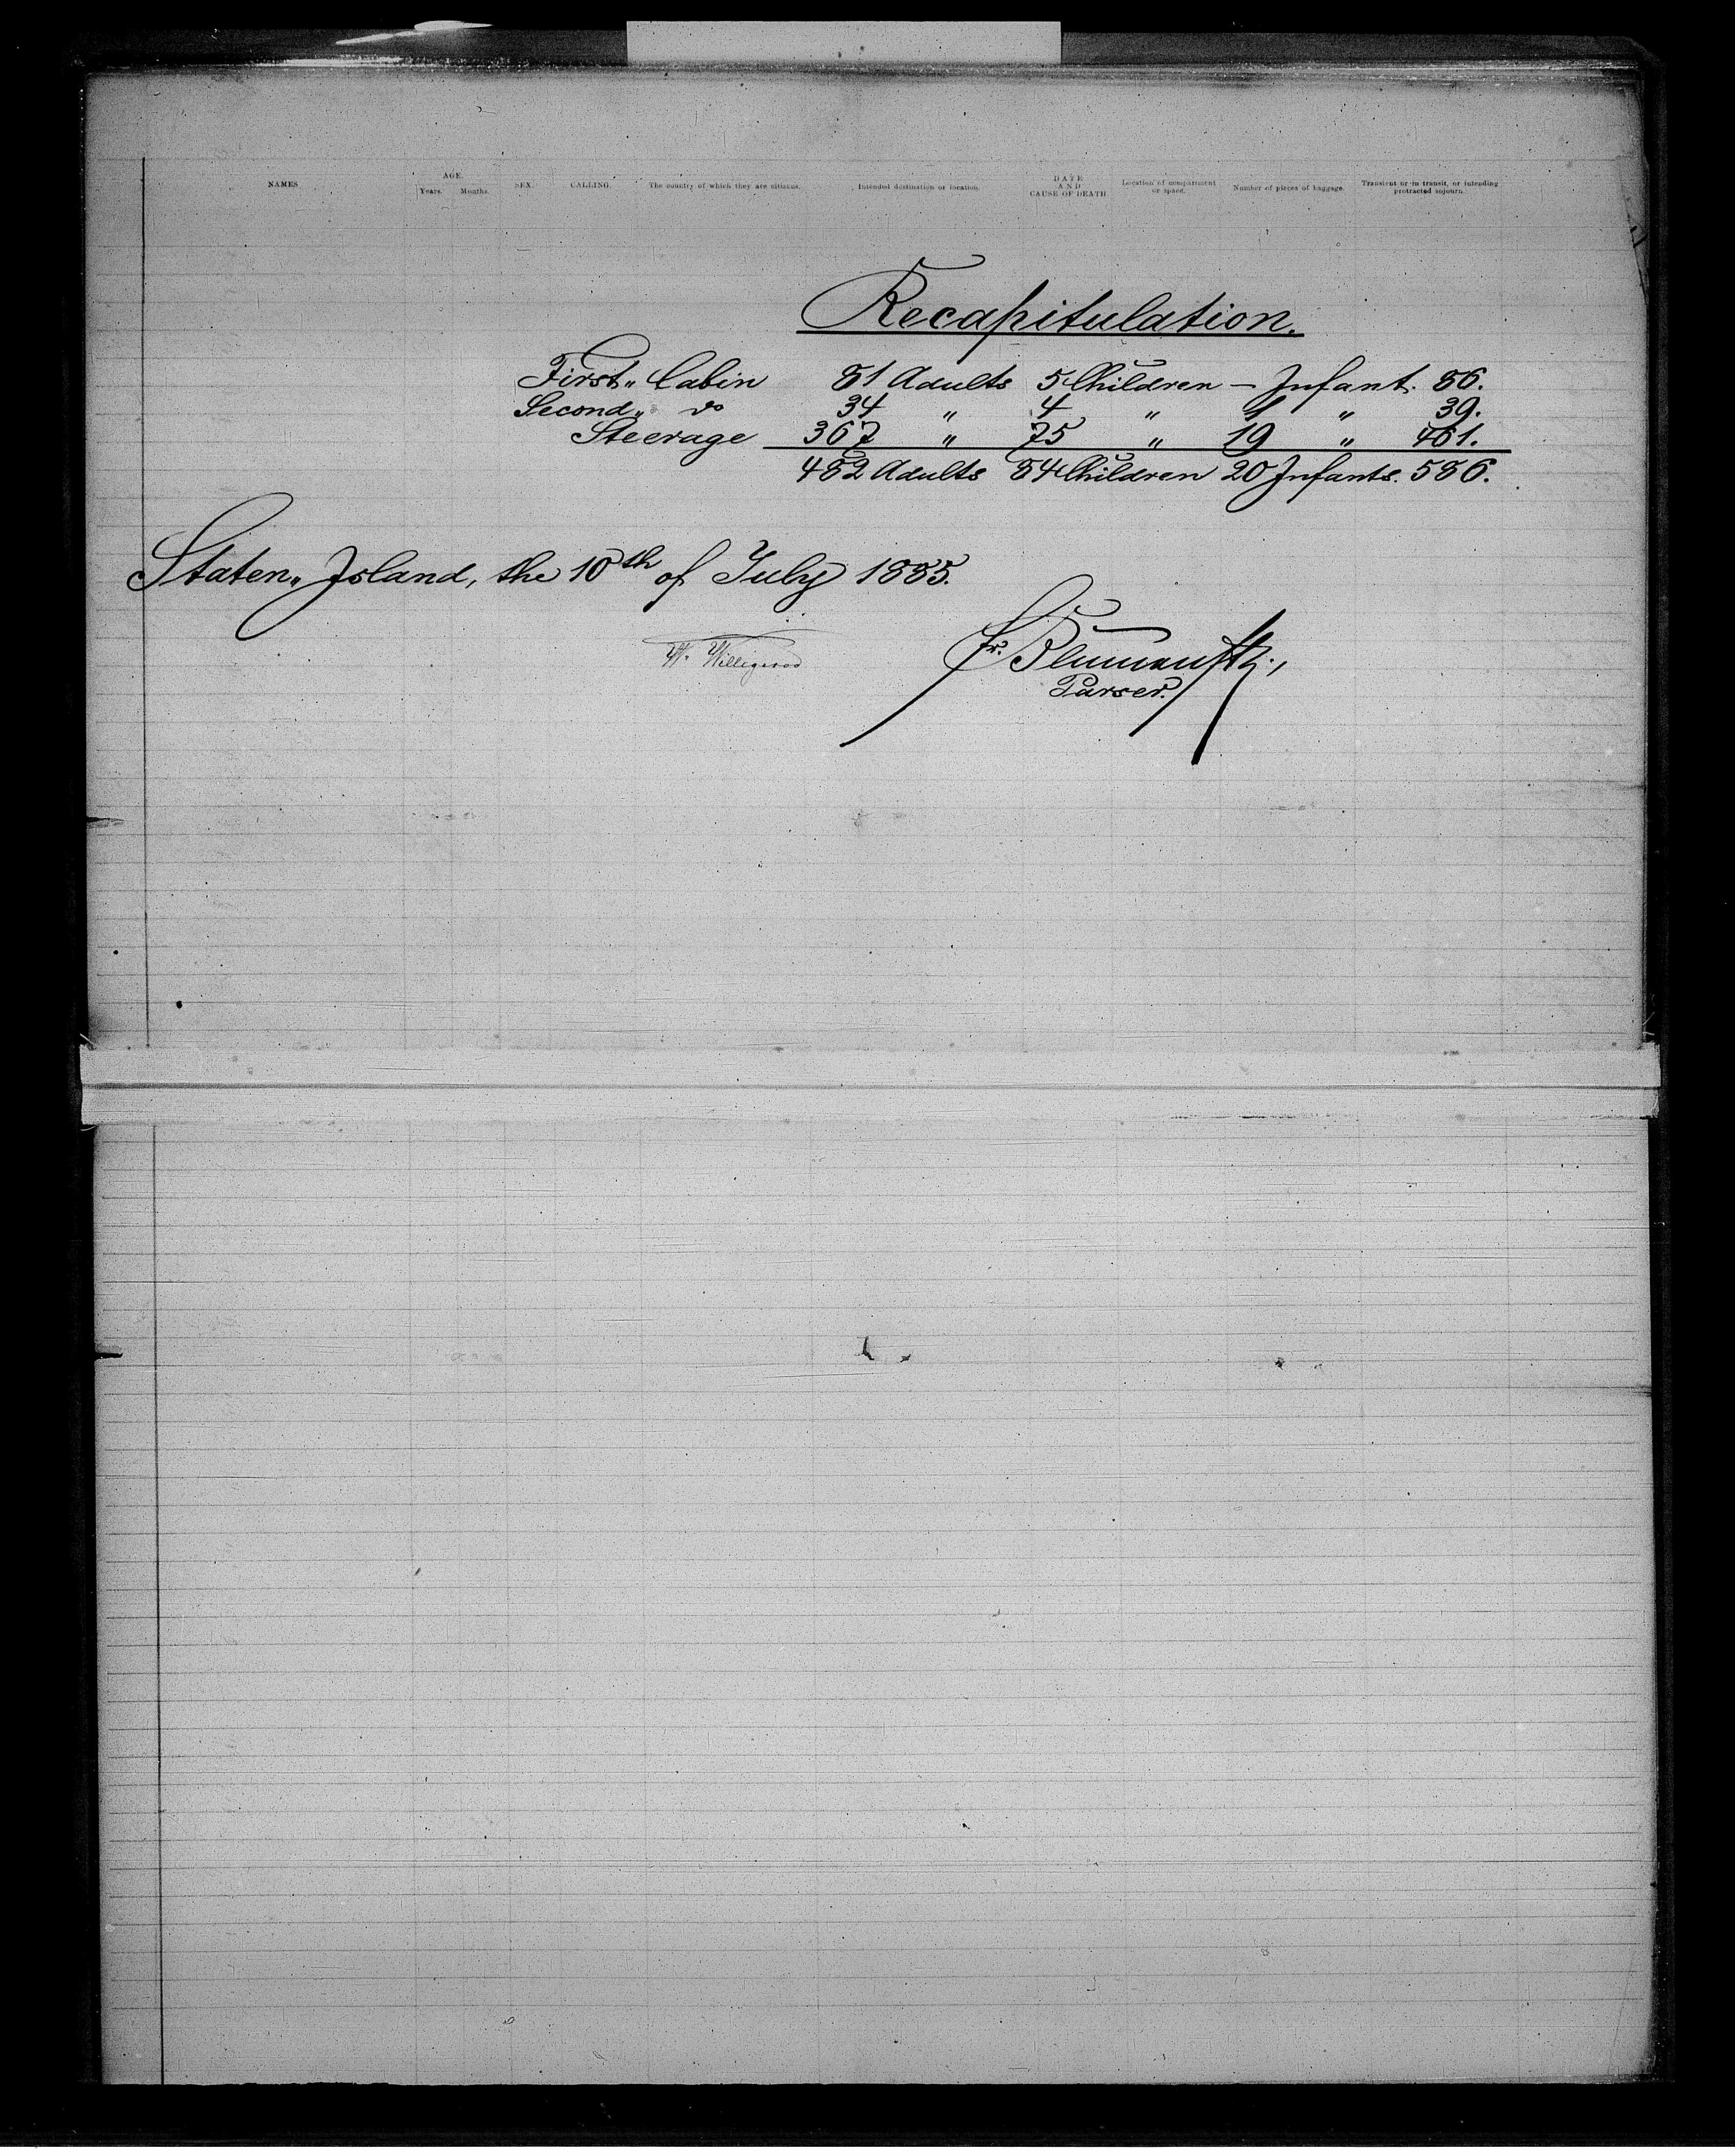 NAMES
AGE.
Years. Months.
SEX.
CALLING.
The country of which they are citizens.
Intended destination or location.
DATE
AND
CAUSE OF DEATH
Location of compartment
or space.
Number of pieces of baggage.
Transient or in transit, or intending
protracted sojourn.
Recapitulation.
First„ Cabin 81 Adults 5 Children — Infant. 86.
Second„ do 34 " 4 " 1 " 39.
Steerage 367 " 75 " 19 " 461.
482 Adults 84 Children 20 Infants. 586.
Staten„ Island, the 10th of July 1885.
W. Willigerod
Fr.
Purser.